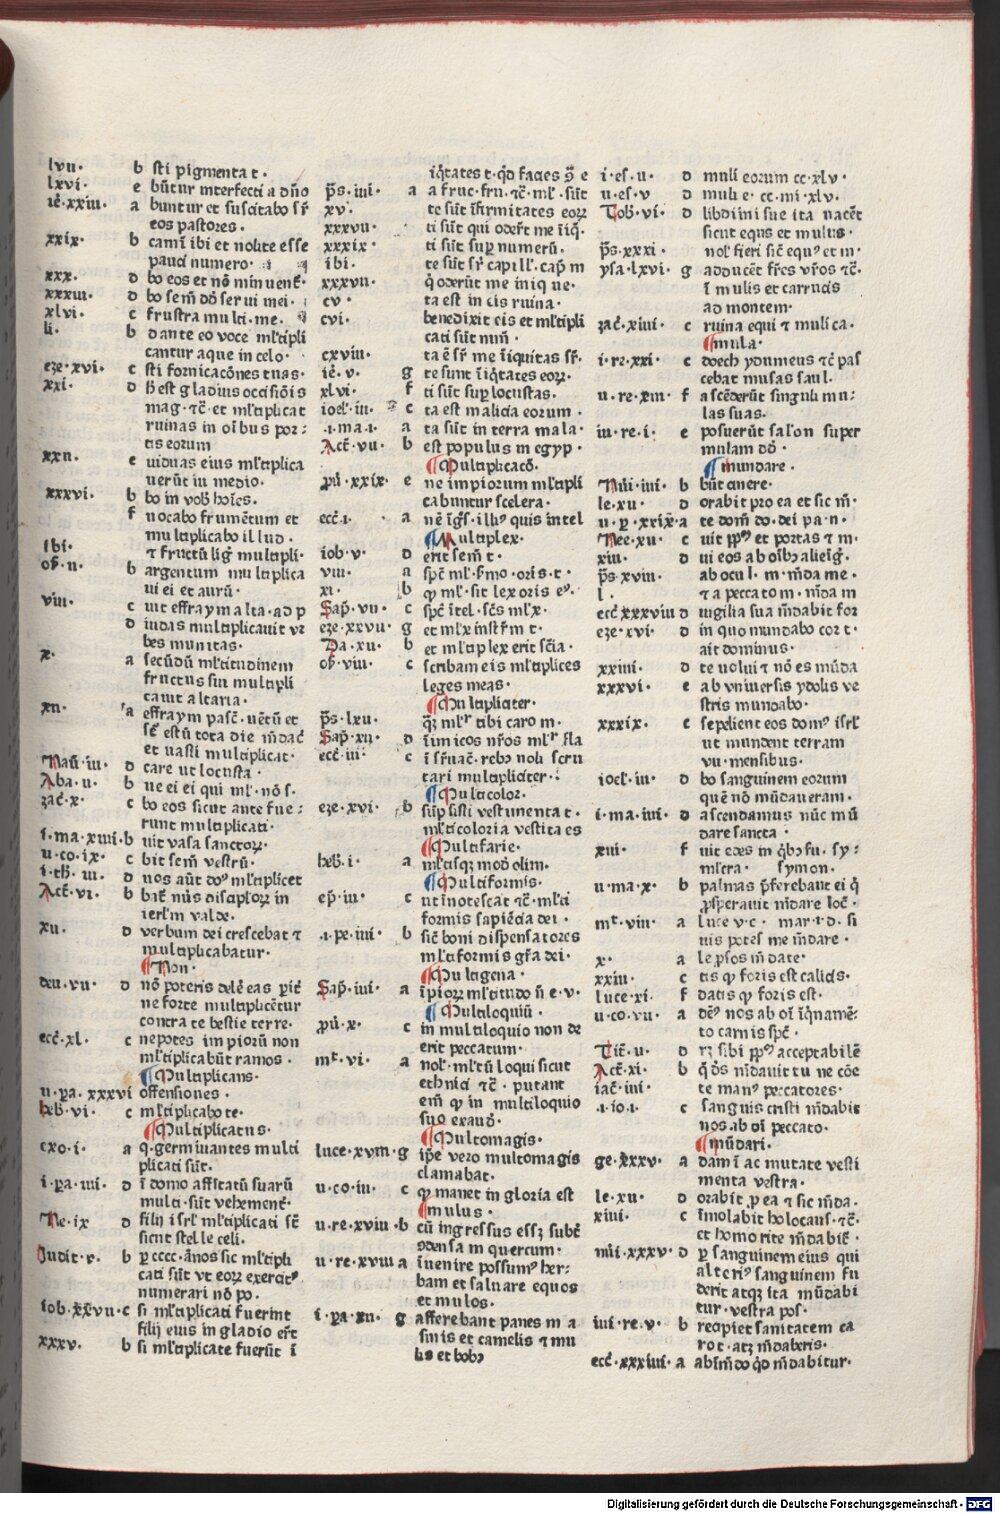 lvii· b sti pigmenta t·
lxvi· e būtur interfecti a dño
iē·xxiii· a buntur et suscitabo sr̄
eos pastores·
xxix· b camī ibi et nolite esse
pauci numero·
xxx· d bo eos et nō minuent᷑·
xxxiii· d bo sem̄ dd̄ serui mei·
xlvi· c frustra multi·me·
li· b dante eo voce ml̄tipli
cantur aque in celo·
eze·xvi· c sti fornicacōnes tuas·
xxi· d h̄ est gladius occisiōis
mag·⁊c̄· et ml̄tiplicat
ruinas in oībus por:
tis eorum
xxii· e uiduas eius ml̄tiplica
uerūt in medio·
xxxvi· b bo in vob̄ hoīes·
f uocabo frumētum et
multiplicabo illud·
ibi· ⁊ fructū liḡ multipli·
of̄·ii· b argentum multiplica
ui ei et aurū·
viii· c uit effraym alta·ad p
d iudas multiplicauit vr
bes munitas·
x· a secūdū ml̄titudinem
fructus sui multipli
cauit altaria·
xii· a effraym pasc̄·uētū et
sc̄ estū tota die m̄dac̄
et uasti multiplicat·
Naū·iii· d care ut locusta·
Aba·ii· b ue ei ei qui ml̄·nō s·
zac̄·x· c bo eos sicut ante fue:
runt multiplicati·
i·ma·xiiii·b uit vasa sanctoꝝ·
ii·co·ix· c bit sem̄ vestrū·
i·th̄·iii· d uos aūt do⁹ ml̄tiplicet
Act̄·vi· b bat᷑ nūs discip̄loꝝ in
ierl̄m valde·
xii· d verbum dei crescebat ⁊
multiplicabatur·
¶Non·
deu·vii· d nō poteris delē eas pit᷑
ne forte multiplicētur
contra te bestie terre·
ecc̄·xl· c nepotes impiorū non
ml̄tiplicabūt ramos·
¶Multiplicans·
ii·pa·xxxvi offensiones·
heb̄·vi· c ml̄tiplicabo te·
¶Multiplicatus·
exo·i· a q·germinantes multi
plicati sūt·
i·pa·iiii· d ī domo affītatū suarū
multi·sūt vehement᷑·
Ne·ix d filij isrl̄ ml̄tiplicati sc̄
sicut stelle celi·
Judit·v· b p cccc·ānos sic ml̄tipli
cati sūt vt eoꝝ exercit⁹
numerari nō po·
iob·xxvii·c si ml̄tiplicati fuerint
filij eius in gladio er̄t
xxxv· b si ml̄tiplicate fuerīt ī
iq̄tates t·qd̄ facies 9̄ e
ps̄·iiii· a a fruc·fru·⁊c̄·ml̄·sūt
xv· te sūt īfirmitates eoꝝ
xxxvii· ti sūt qui oder̄t me īiq̄·
xxxix· ti sūt sup numerū·
ibi· te sūt sr̄ capill·cap̄ m
xxxvii· q̄ oderūt me inique·
cv· ta est in eis ruina·
cvi· benedixit eis et ml̄tipli
cati sūt nim̄·
cxviii· ta ē sr̄ me īiquitas sr̄·
iē·v· g te sunt īiq̄tates eoꝝ·
xlvi· f ti sūt sup locustas·
ioel·iii· c ta est malicia eorum·
·i·ma·i· a ta sūt in terra mala·
Act̄·vii· b est populus in egyp·
¶Multiplicacō·
pū·xxix· e ne impiorum ml̄tipli
cabuntur scelera·
ecc̄·i· a nē īgs̄·illi⁹ quis intel
¶Multiplex·
iob·v· d erit sem̄ t·
viii· a spc̄ ml̄·s̄mo·oris·t·
xi· b qꝫ ml̄·sit lex oris e⁹·
Sap̄·vii· c spc̄ ītel·scs̄ ml̄x·
eze·xxvii· g et ml̄x instr̄m t·
Da·xii· b et ml̄tiplex erit scīa·
of̄·viii· c scribam eis ml̄tiplices
leges meas·
¶Multipliciter·
ps̄·lxii· q̄ ml̄r tibi caro m·
Sap̄·xii· d īimicos nr̄os ml̄r fla
ecc̄·iii· c ī sr̄uac̄·reb9 noli scru
tari multipliciter·:
¶Multicolor·
eze·xvi· b sūpsisti vestimenta t·
ml̄ticoloria vestita es
¶Multifarie·
heb̄·i· a ml̄tisqꝫ mod olim·
¶Multiformis·
ep̄·iii· c ut īnotescat ⁊c̄·ml̄ti
formis sapiēcia dei·
·i·pe·iiii· b sic̄ boni dispensatores
ml̄tiformis gr̄a dei·
¶Multigena·
Sap̄·iiii· a īpioꝝ ml̄titudo n̄ e·v·
¶Multiloquiū·
pū·x· c in multiloquio non de
erit peccatum·
mt̄·vi· a nol·ml̄tū loqui sicut
ethnici ⁊c̄·putant
em̄ qꝫ in multiloquio
suo exaud̄·
¶Multomagis·
luce·xviii·g ip̄e vero multomagis
clamabat·
ii·co·iii· c qꝫ manet in gloria est
¶mulus·
ii·re·xviii·b cū ingressus essꝫ subt᷑
ii·re·xviii a densam quercum·
īuenire possum⁹ her:
bam et saluare equos
et mulos·
i·pa·xii· g afferebant panes in a
sinis et camelis ⁊ mu
lis et bob9
i·es·ii· d muli eorum cc·xlv·
ii·es·v d muli e·cc·mi·xlv·
Tob·vi· d libdimi sue ita uacēt
sicut equs et mulus·
ps̄·xxxi· nol·fieri sic̄ equ⁹ et m·
ysa·lxvi· g adducēt fr̄es vr̄os ⁊c̄·
ī mulis et carrucis
ad montem·
zac̄·xiiii· c ruina equi ⁊ muli ca·
¶mula·
i·re·xxi· c doech ydumeus ⁊c̄ pas
cebat mulas saul·
ii·re·xiii· f ascēderūt singuli mu:
las suas·
iii·re·i· e posuerūt salon super
mulam dd̄·
¶mundare·
Nūi·iiii· b būt cinere·
le·xii· d orabit pro ea et sic m̄·
ii·p·xxix·a te dom̄ do·dei pa·n·
Nee·xii· c uit pp̄⁹ et portas ⁊ m·
xiii· d ui eos ab oīb9 alieiḡ·
ps̄·xviii· ab ocul·m·m̄da me·
l· ⁊ a peccato m·m̄da m
ecc̄·xxxviii d uigilia sua m̄dabit for
eze·xvi· d in quo mundabo cor t·
ait dominus·
xxiiii· d te uolui ⁊ nō es mūda
xxxvi· e ab vniuersis ydolis ve
stris mundabo·
xxxix· c sepelient eos dom⁹ isrl̄
ut mundent terram
vii·mensibus·
ioel·iii· d bo sanguinem eorum
quē nō mūdaueram·
i·ma·iiii· d ascendamus nūc mū
dare sancta·
xiii· f uit edes in q̄b9 fu·sy:
ml̄cra· symon·
ii·ma·x· b palmas p̄ferebant ei q̄
p̄sperauit m̄dare loc̄·
mt̄·viii· a luce v·c·mar·i·d·si
uis potes me m̄dare·
x· a leprosos m̄date·
xxiii· c tis qꝫ foris est calicis·
luce·xi· f datis qꝫ foris est·
ii·co·vii· a dē⁹ nos ab oī īq̄namē:
to carnis spc̄·
Tit̄·ii· d rꝫ sibi pp̄⁹ acceptabilē
Act̄·xi· b q̄ ds̄ m̄dauit tu ne cōe
iac̄·iiii· te man⁹ peccatores·
·i·io·i· c sanguis cristi m̄dabit
nos ab oī peccato·
¶mūdari·
ge·xxxv· a dami ac mutate vesti
menta vestra·
le·xii· d orabit p ea ⁊ sic m̄da·
xiiii· c īmolabit holocaus·⁊c̄·
et homo rite m̄dabit᷑·
nūi·xxxv·d p sanguinem eius qui
alteri⁹ sanguinem fu
derit atqꝫ ita mūdabi
tur·vestra pos·
iiii·re·v· b recipiet sanitatem ca
ro t·atꝫ m̄daberis·
ecc̄·xxxiiii·a ab īm̄do qd̄ m̄dabitur·
Digitalisierung gefördert durch die Deutsche Forschungsgemeinschaft - DFG